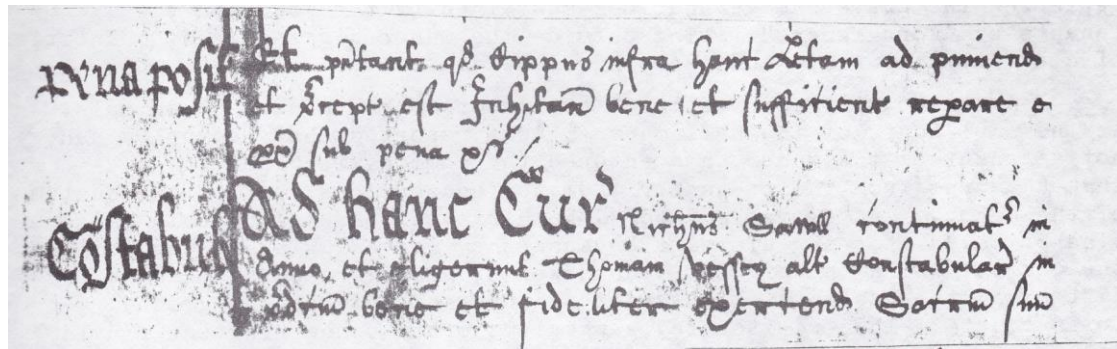 pena posit Et p̄ntant qd Cippus infra hanc letam ad puniend
et p̄cept est Inhitan̄ bene et sufficient repare e
sub pena xs
Constabul Ad hanc Cur Richus continuat in
Anno et eligerunt Thomam vessey alt Constabular in
bene et fideliter exercend Sacrm sūū